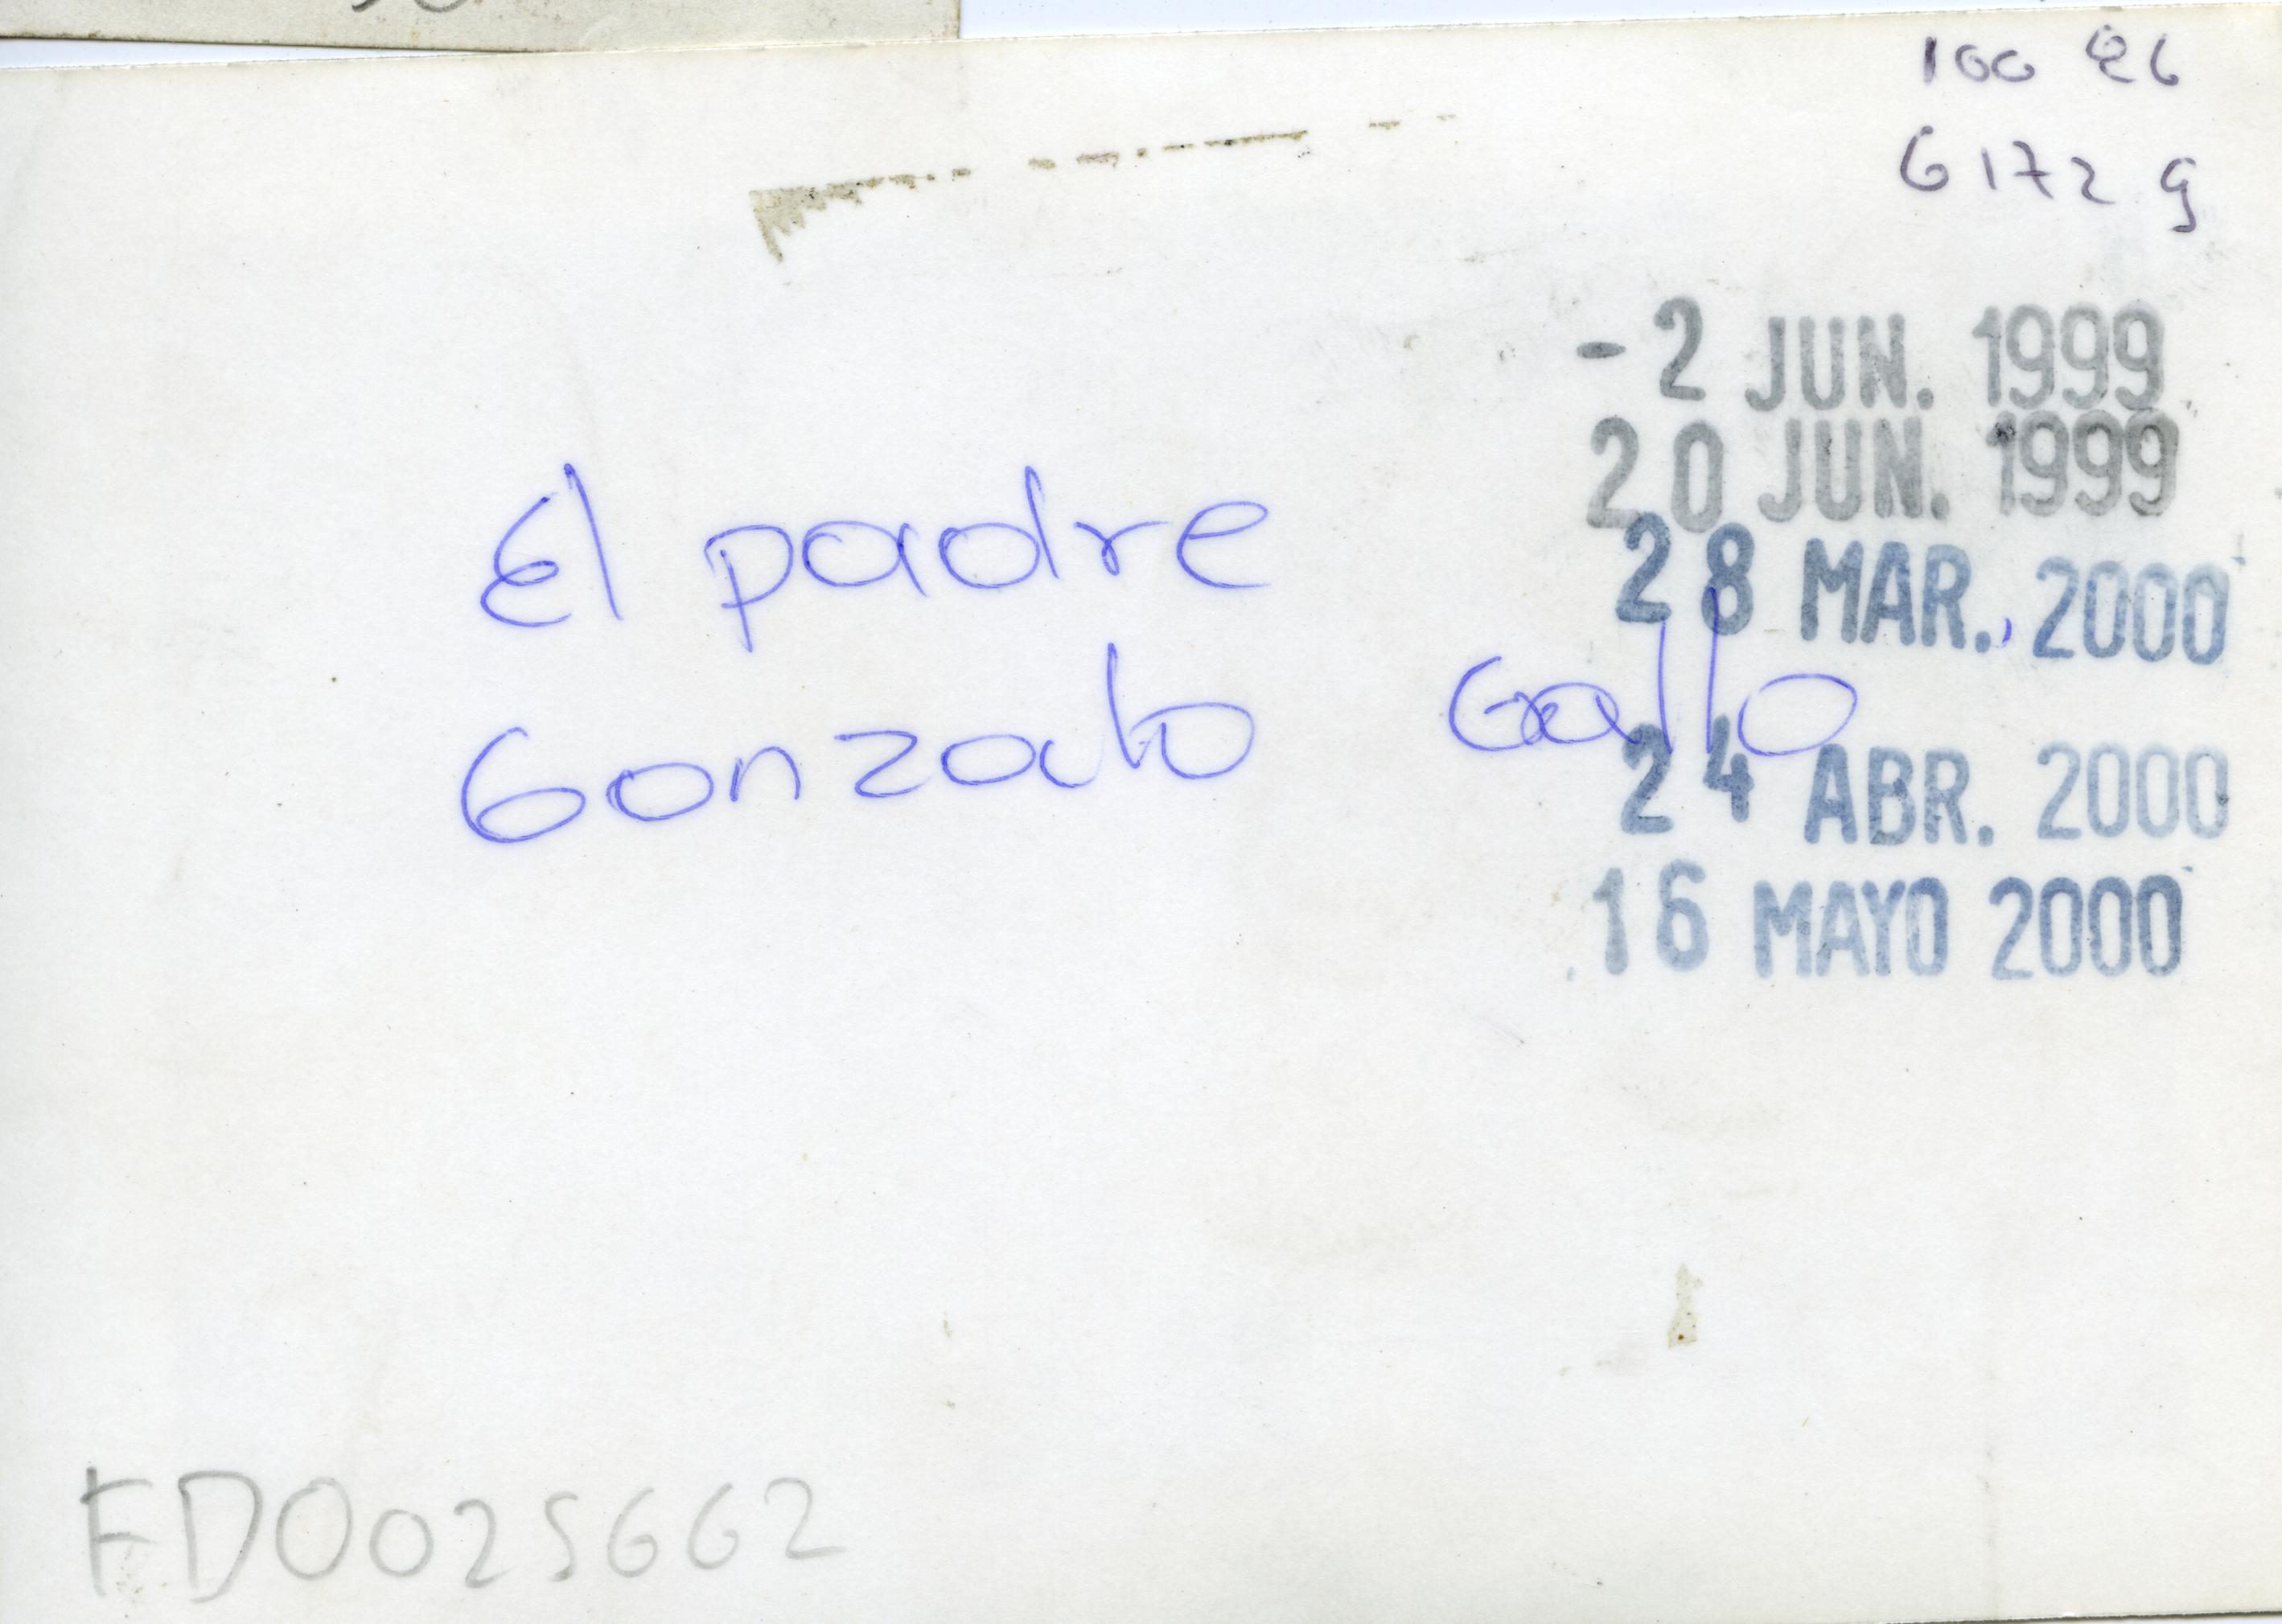 6172 g
- 2 JUN. 1999
20 JUN. 1999
El padre
28 MAR. 2000
Gonzalo Gallo
24 ABR. 2000
16 MAYO 2000
FD0025662